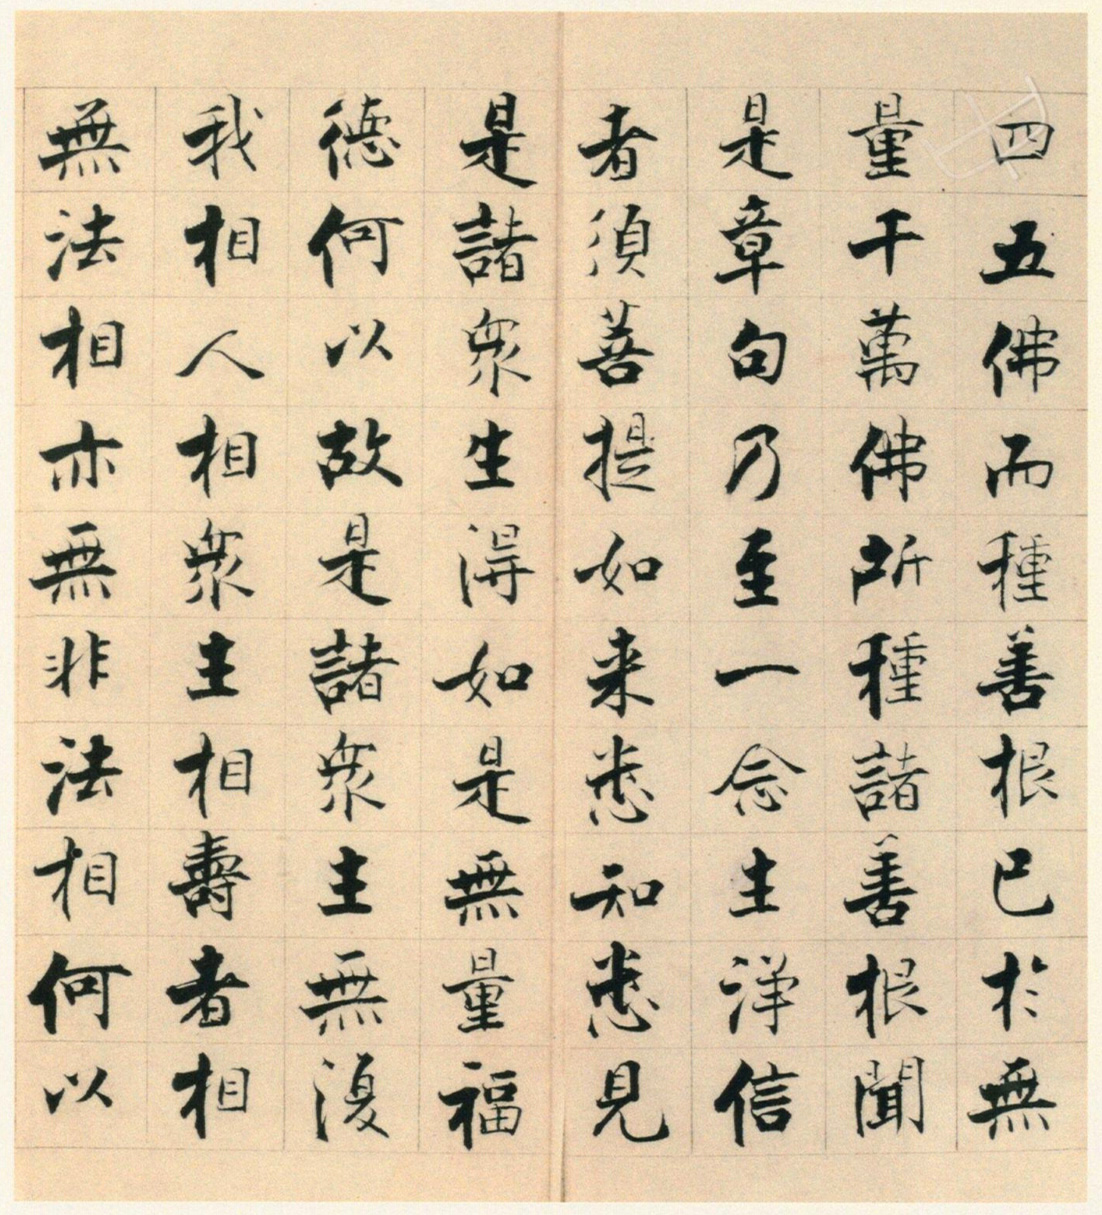 四五佛而種善根已於無
量千萬佛所種諸善根聞
是章句乃至一念生淨信
者須菩提如来悉知悉見
是諸衆生得如是無量福
德何以故是諸衆生無復
我相人相衆生相壽者相
無法相亦無非法相何以